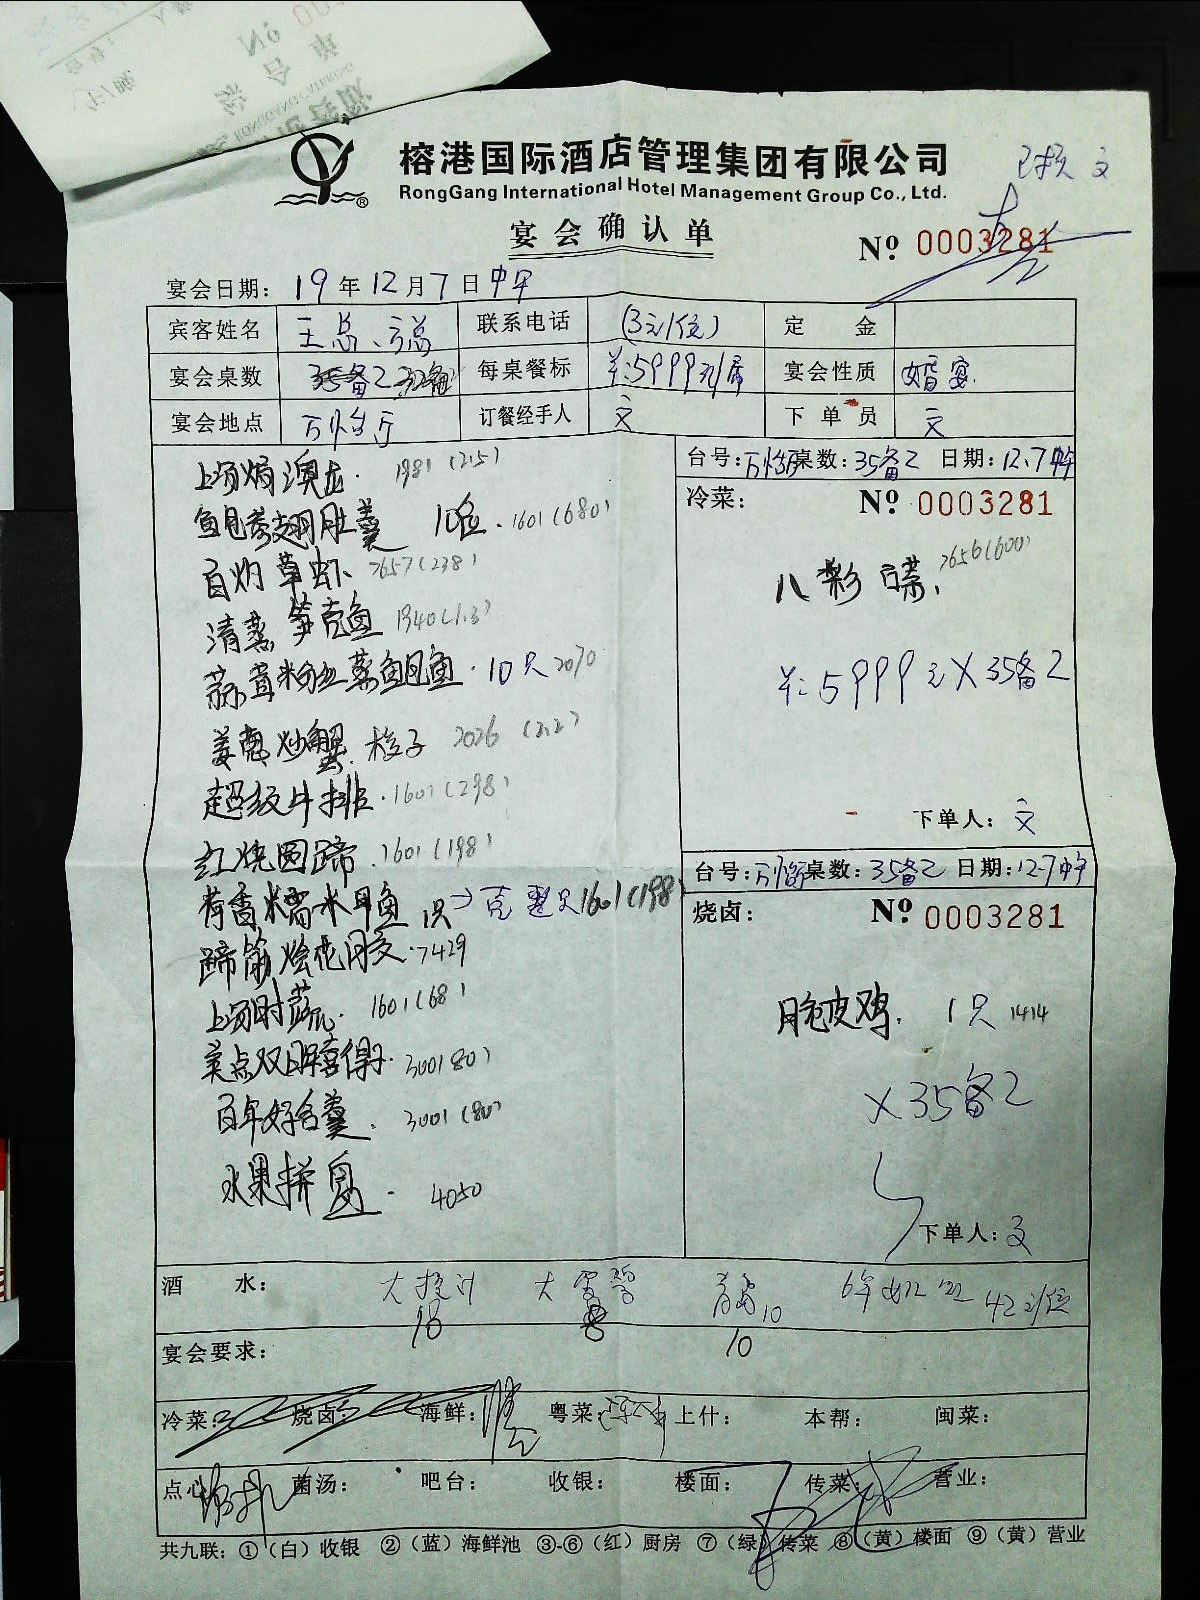 榕港国际酒店管理集团有限公司
RongGang International Hotel Management Group Co., Ltd.
宴会确认单
№ 0003281
宴会日期: 19年12月7日中午
宾客姓名 王总、 联系电话 (3元/位) 定金
宴会桌数 35备2 每桌餐标 5999元/席 宴会性质 婚宴
宴会地点 万怡厅 订餐经手人 文 下单员 文
台号:万怡厅 桌数:35备2 日期:12.7中午
冷菜: № 0003281
八彩碟 7656(600)
5999元X35备2
下单人:文
上汤焗澳龙. 1981 (2.5)
鲍参翅肚羹 10位. 1601(680)
白灼草虾 7657(238)
清蒸笋壳鱼 1940(1.3)
蒜茸粉丝蒸鲍鱼. 10只 2070
姜葱炒蟹. 梭子 2026 (2.2)
超级牛排. 1601(298)
红烧圆蹄. 1601(198)
荷香糯米甲鱼 1只 1601(198)
蹄筋烩花胶. 7429
上汤时蔬. 1601(68)
美点双 3001(80)
百年好合羹. 3001(80)
水果拼盘. 4050
台号:万怡厅 桌数:35备2 日期:12.7中午
烧卤: № 0003281
脆皮鸡. 1只 1414
X35备2
下单人:文
酒水: 大 10 6年 42元/位
18 10
宴会要求:
冷菜: 烧卤: 海鲜: 粤菜: 上什: 本帮: 闽菜:
点心: 菌汤: 吧台: 收银: 楼面: 传菜: 营业:
共九联:①(白)收银 ②(蓝)海鲜池 ③-⑥(红)厨房 ⑦(绿)传菜 ⑧(黄)楼面 ⑨(黄)营业